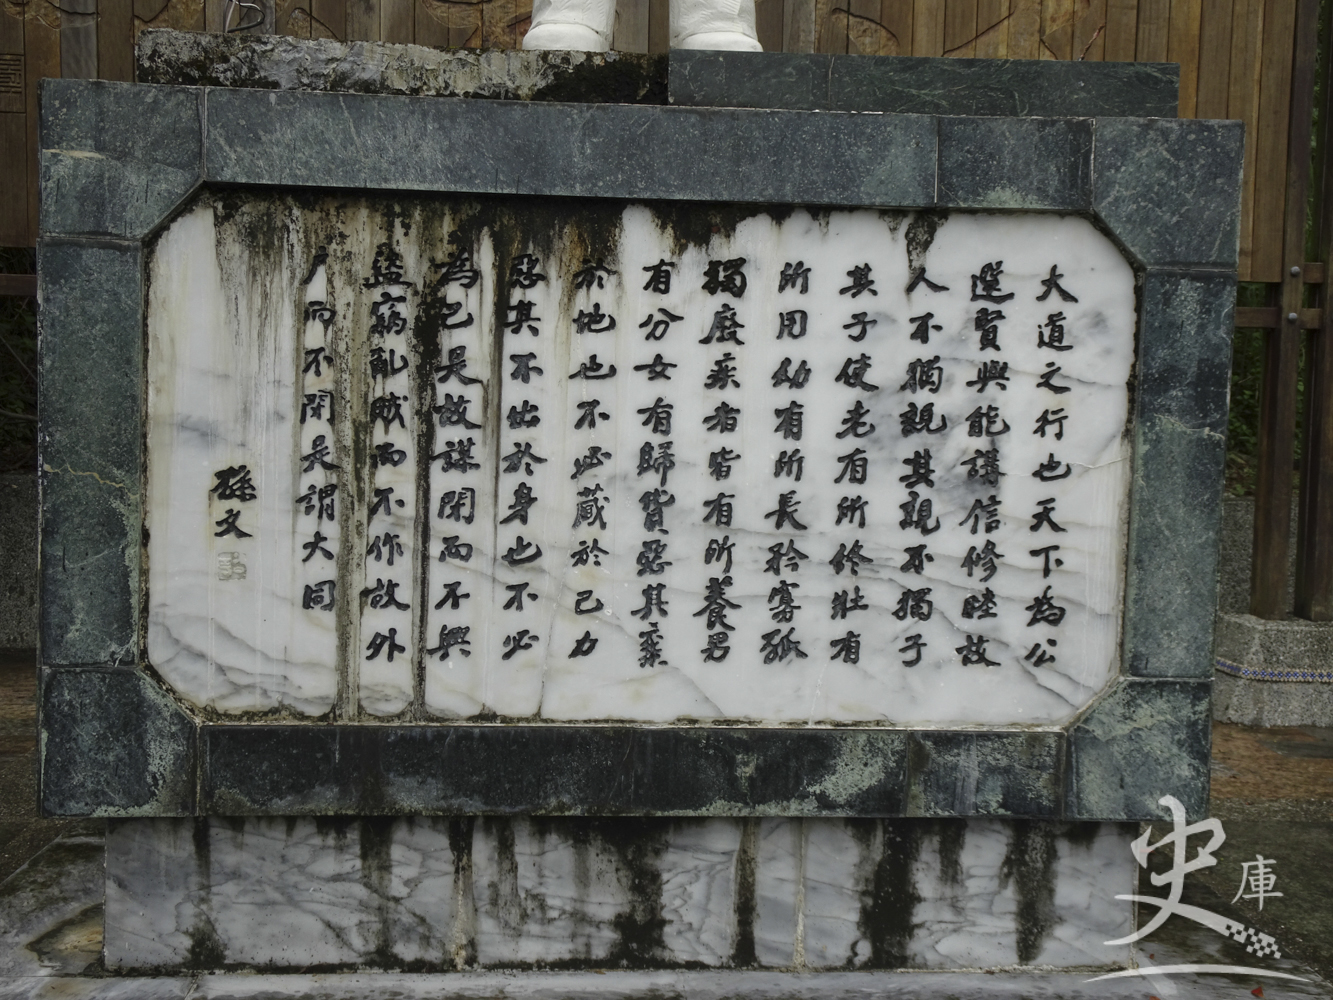 大道之行也天下為公
選賢與能講信修睦故
人不獨親其親不獨子
其子使老有所終壯有
所用幼有所長矜寡孤
獨廢疾者皆有所養男
有分女有歸貨惡其棄
於地也不必藏於己力
惡其不出於身也不必
為己是故謀閉而不興
盜竊亂賊而不作故外
戶而不閉是謂大同
孫文
史庫